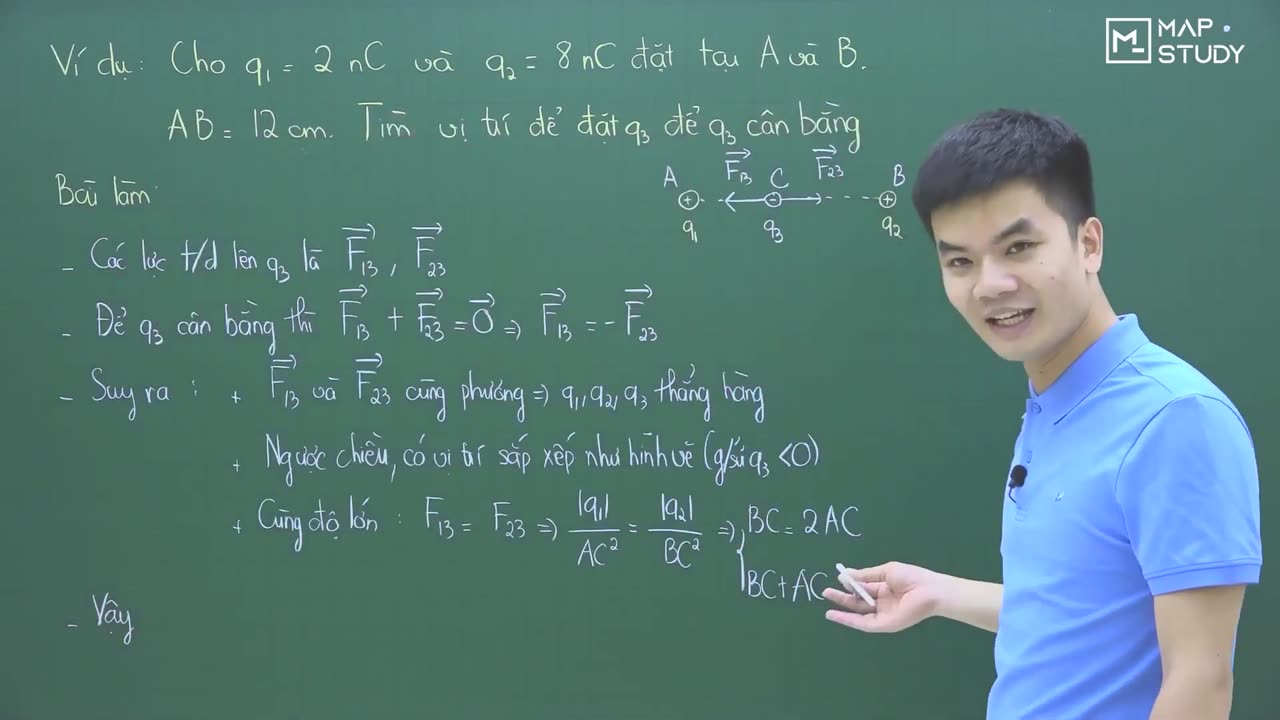 MAP
STUDY
Ví dụ: Cho q₁ = 2 nC và q₂ = 8 nC đặt tại A và B.
AB = 12 cm. Tìm vị trí để đặt q₃ để q₃ cân bằng
A F₁₃ C F₂₃ B
+ - +
q₁ q₃ q₂
Bài làm:
- Các lực t/d lên q₃ là F₁₃, F₂₃
- Để q₃ cân bằng thì F₁₃ + F₂₃ = 0 => F₁₃ = - F₂₃
- Suy ra : + F₁₃ và F₂₃ cùng phương => q₁, q₂, q₃ thẳng hàng
+ Ngược chiều, có vị trí sắp xếp như hình vẽ (g/sử q₃ < 0)
+ Cùng độ lớn : F₁₃ = F₂₃ => |q₁|/AC² = |q₂|/BC² => { BC = 2AC
BC + AC
- Vậy